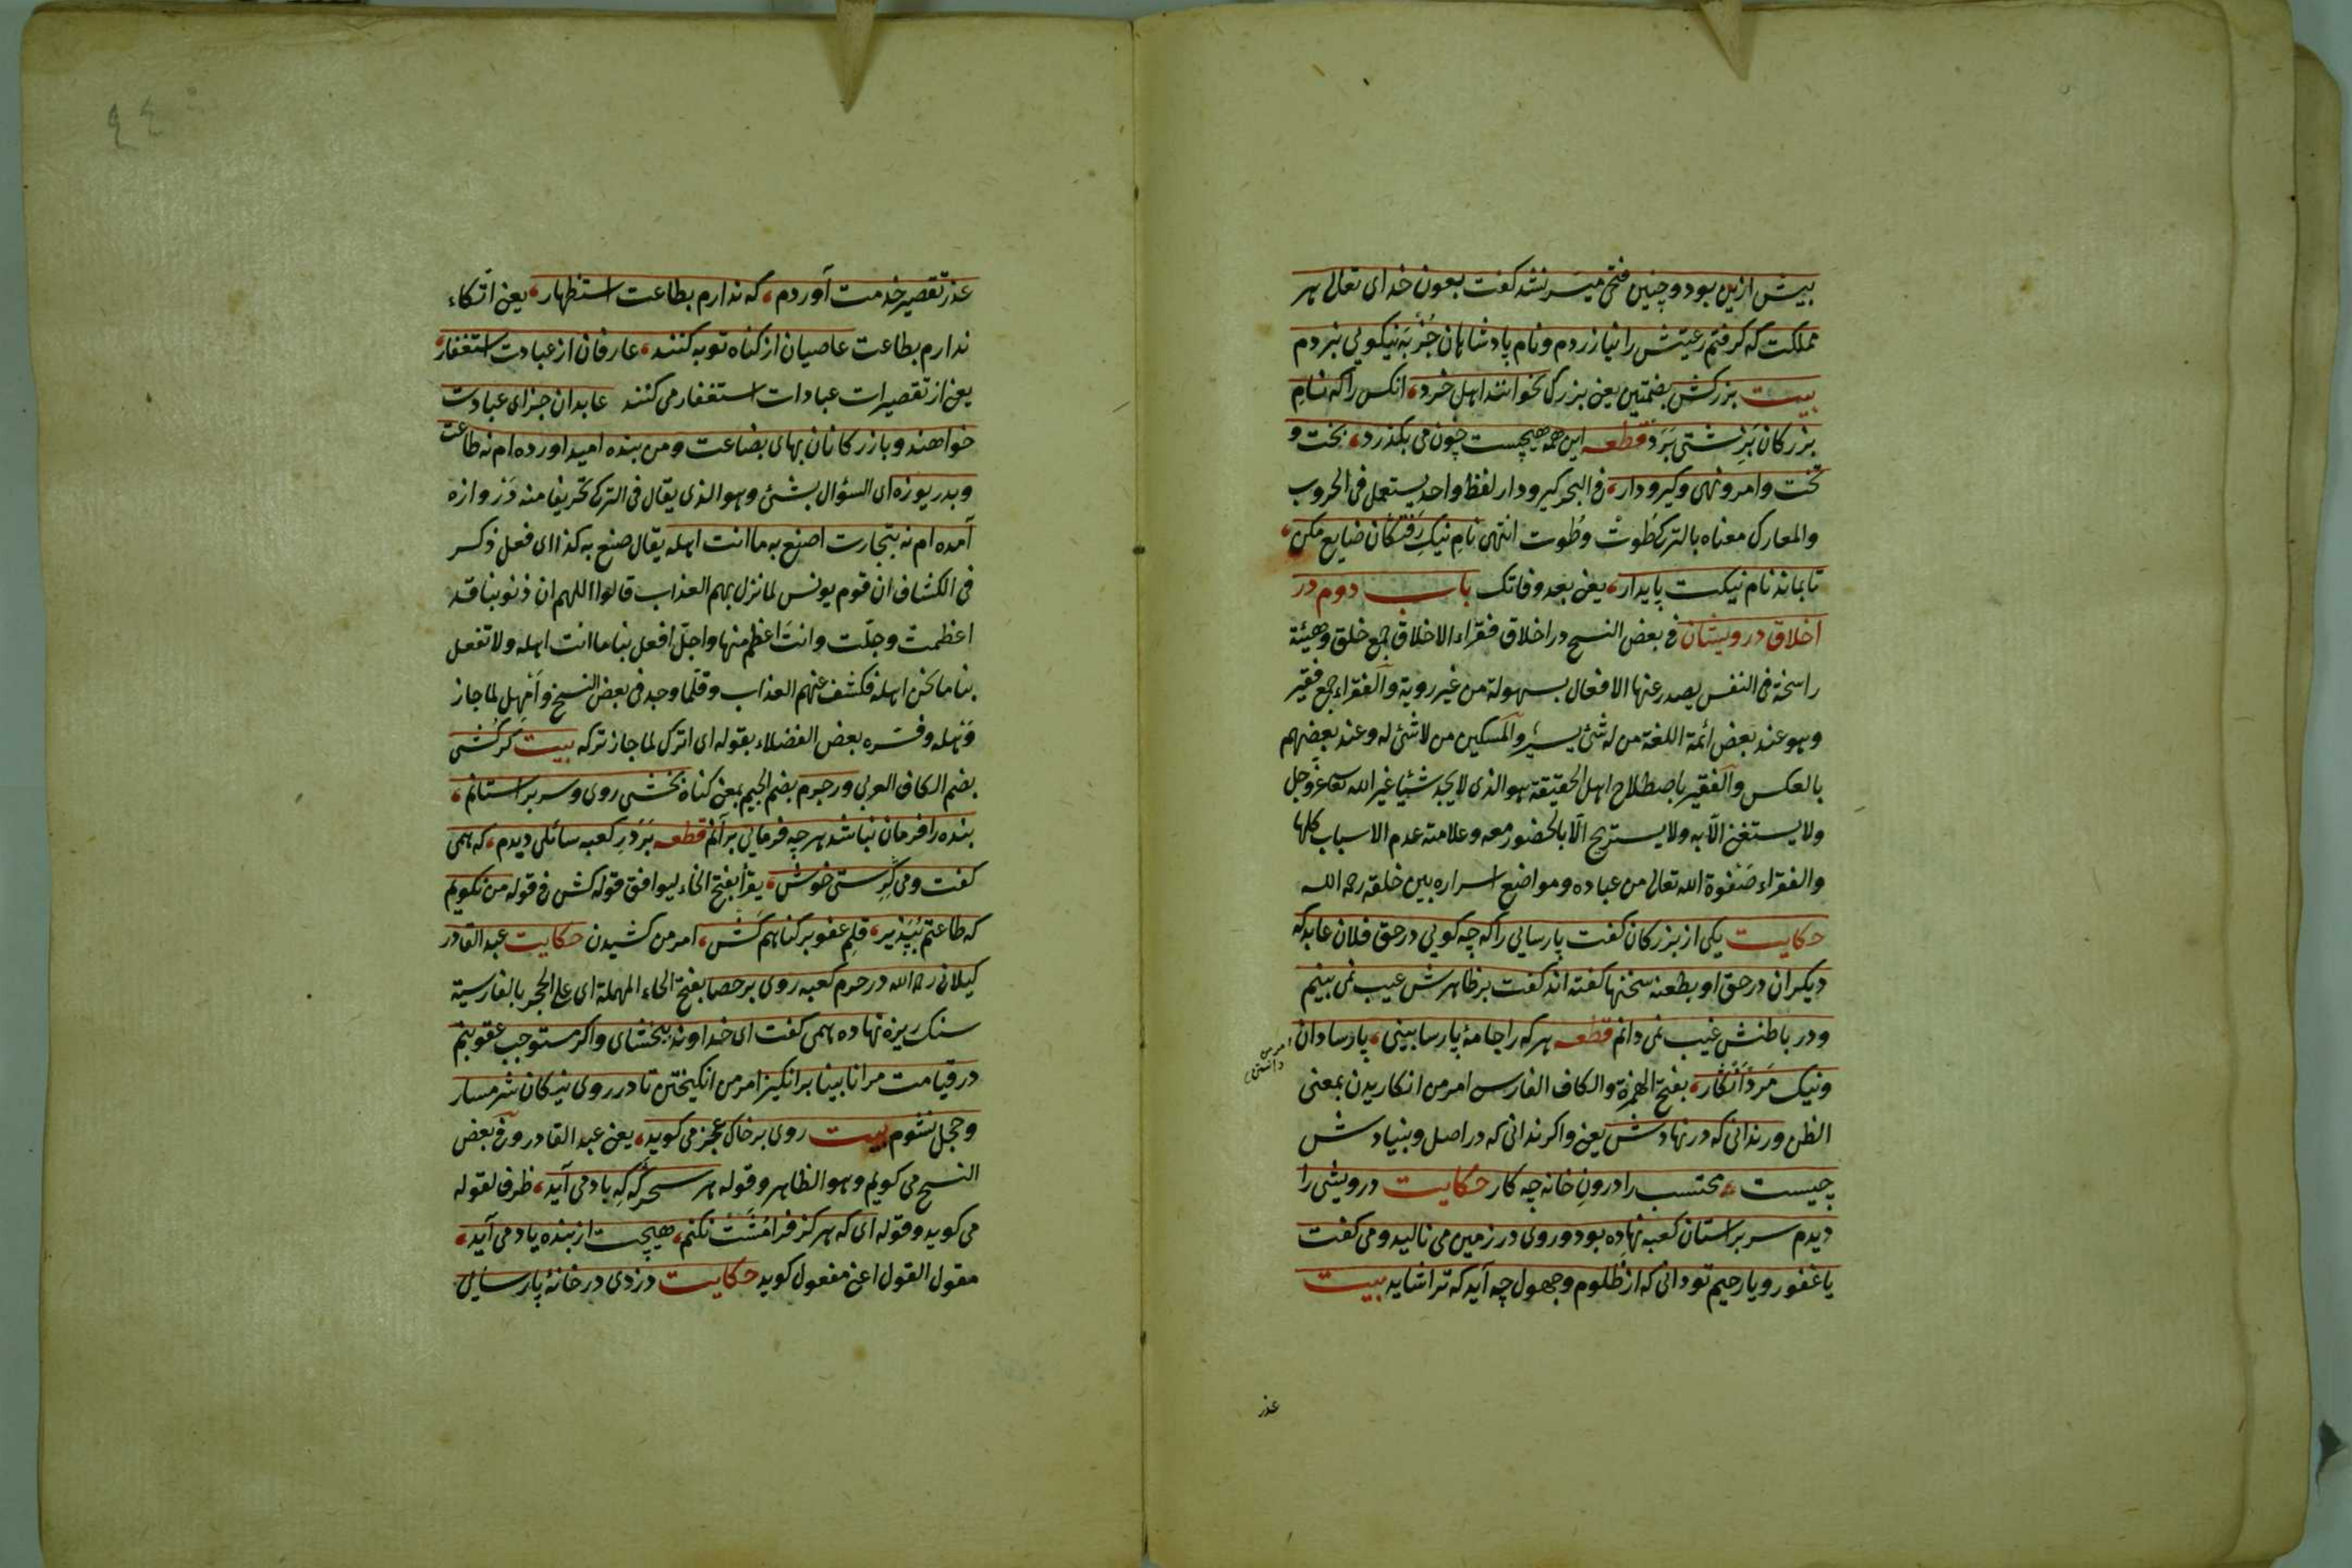 بیش ازین بود و چنین فتحی میسر نشد کفت بعون خدای تعالی هر
مملکت که کرفتم رعیتش را نیازردم و نام پادشاهان جُزْ بَه نیکویی نبردم
بیت بزرکش بضمتین یعنی بزرک نخوانند اهل خرد، انکس را که نامِ
بزرکان بَزِشتی بَرَدْ قطعه این همه هیچست چون می بکذرد، بخت و
تخت و امر و نهی و کیر و دار، فی البحر کیر و دار لفظ واحد یستعمل فی الحروب
والمعارک معناه بالترکی طُوتْ وطُوت انتهی نامِ نیکِ رَفتکَان ضایع مکن،
تا بماند نام نیکت پایدار، یعنی بعد وفاتک باب دوم در
اخلاق درویشان فی بعض النسخ در اخلاق فقراء الاخلاق جمع خلق وهیئة
راسخة فی النفس یصدر عنها الافعال بسهولة من غیر رویة والفقراء جمع فقیر
وهو عند بعض ائمة اللغة من له شئ یسیر والمسکین من لا شئ له وعند بعضهم
بالعکس والفقیر باصطلاح اهل الحقیقة هو الذی لا یجد شیئا غیر الله تعا عزّ وجل
ولا یستغنی الّا به ولا یستریح الّا بالحضور معه وعلامته عدم الاسباب کلها
والفقراء صَفوة الله تعالی من عباده ومواضع اسراره بین خلقه رحمه الله
حکایت یکی از بزرکان کفت پارسایی را که چه کویی در حق فلان عابد که
دیکران در حق او بطعنه سخنها کفته اند کفت بر ظاهرش عیب نمی بینم
ودر باطنش غیب نمی دانم قطعه هر که را جامهٔ پارسا بینی، پارسا دان
امر من دانستن
ونیک مَرد اَنکَار، بفتح الهمزة والکاف الفارسی امر من انکاریدن بمعنی
الظن ور ندانی که در نهادش یعنی واکر ندانی که در اصل وبنیادش
چیست، محتسب را درونِ خانه چه کار حکایت درویشی را
دیدم سر بر استان کعبه نهاده بود وروی در زمین می نالید ومی کفت
یا غفور ویا رحیم تو دانی که از ظلوم وجهول چه آید که ترا شاید بیت
عذر
عذر تقصیر خدمت آوردم، که ندارم بطاعت استظهار، یعنی اتّکاء
ندارم بطاعت عاصیان از کناه توبه کنند، عارفان از عبادت استغفار،
یعنی از تقصیرات عبادات استغفار می کنند عابدان جزای عبادت
خواهند وبازرکانان بهای بضاعت ومن بنده امید اورده ام نه طاعت
وبدریوزه ای السؤال بشئ وهو الذی یقال فی الترکی تحریفا منه دَرْوازه
آمده ام نه بتجارت اصنع به ما انت اهله یقال صنع به کذا ای فعل ذکر
فی الکشاف ان قوم یونس لما نزل بهم العذاب قالوا اللهم ان ذنوبنا قد
اعظمت وجلّت وانتَ اعظم منها واجلّ افعل بنا ما انت اهله ولا تفعل
بنا ما نحن اهله فکشف عنهم العذاب وقلّما وجد فی بعض النسخ وَاَمْهِل لما جاز
وَهله وفسّره بعض الفضلاء بقوله ای اترک لما جاز ترکه بیت کر کُشی
بضم الکاف العربی ور جرم بضم الجیم بمعنی کناه بَخشی روی وسر بر استانم،
بنده را فرمان نباشد هر چه فرمایی برآنم قطعه بَرْ دَرِ کعبه سائلی دیدم، که همی
کفت ومی کِرِستی خوش، یقرأ بفتح الخاء لیوافق قوله کش فی قوله من نکویم
که طاعتم بپَذیر، قلمِ عفو بر کناهم کَش، امر من کشیدن حکایت عبد القادر
کیلانی رحمه الله در حرم کعبه روی بر حصا بفتح الحاء المهملة ای علی الحجر بالفارسیة
سنک ریزه نهاده همی کفت ای خداوند ببخشای واکر مستوجب عقوبتم
در قیامت مرا نابینا برانکیز امر من انکیختن تا در روی نیکان شرمسار
وخجل نشوم بیت روی بر خاک عجز می کوید، یعنی عبد القادر وفی بعض
النسخ می کویم وهو الظاهر وقوله هر سحرکَه که باد می آید، ظرف لقوله
می کوید وقوله ای که هرکز فرامُشَتْ نکنم، هیچت از بنده یاد می آید،
مقول القول اعنی مفعول کوید حکایت دزدی در خانهٔ پارسایی